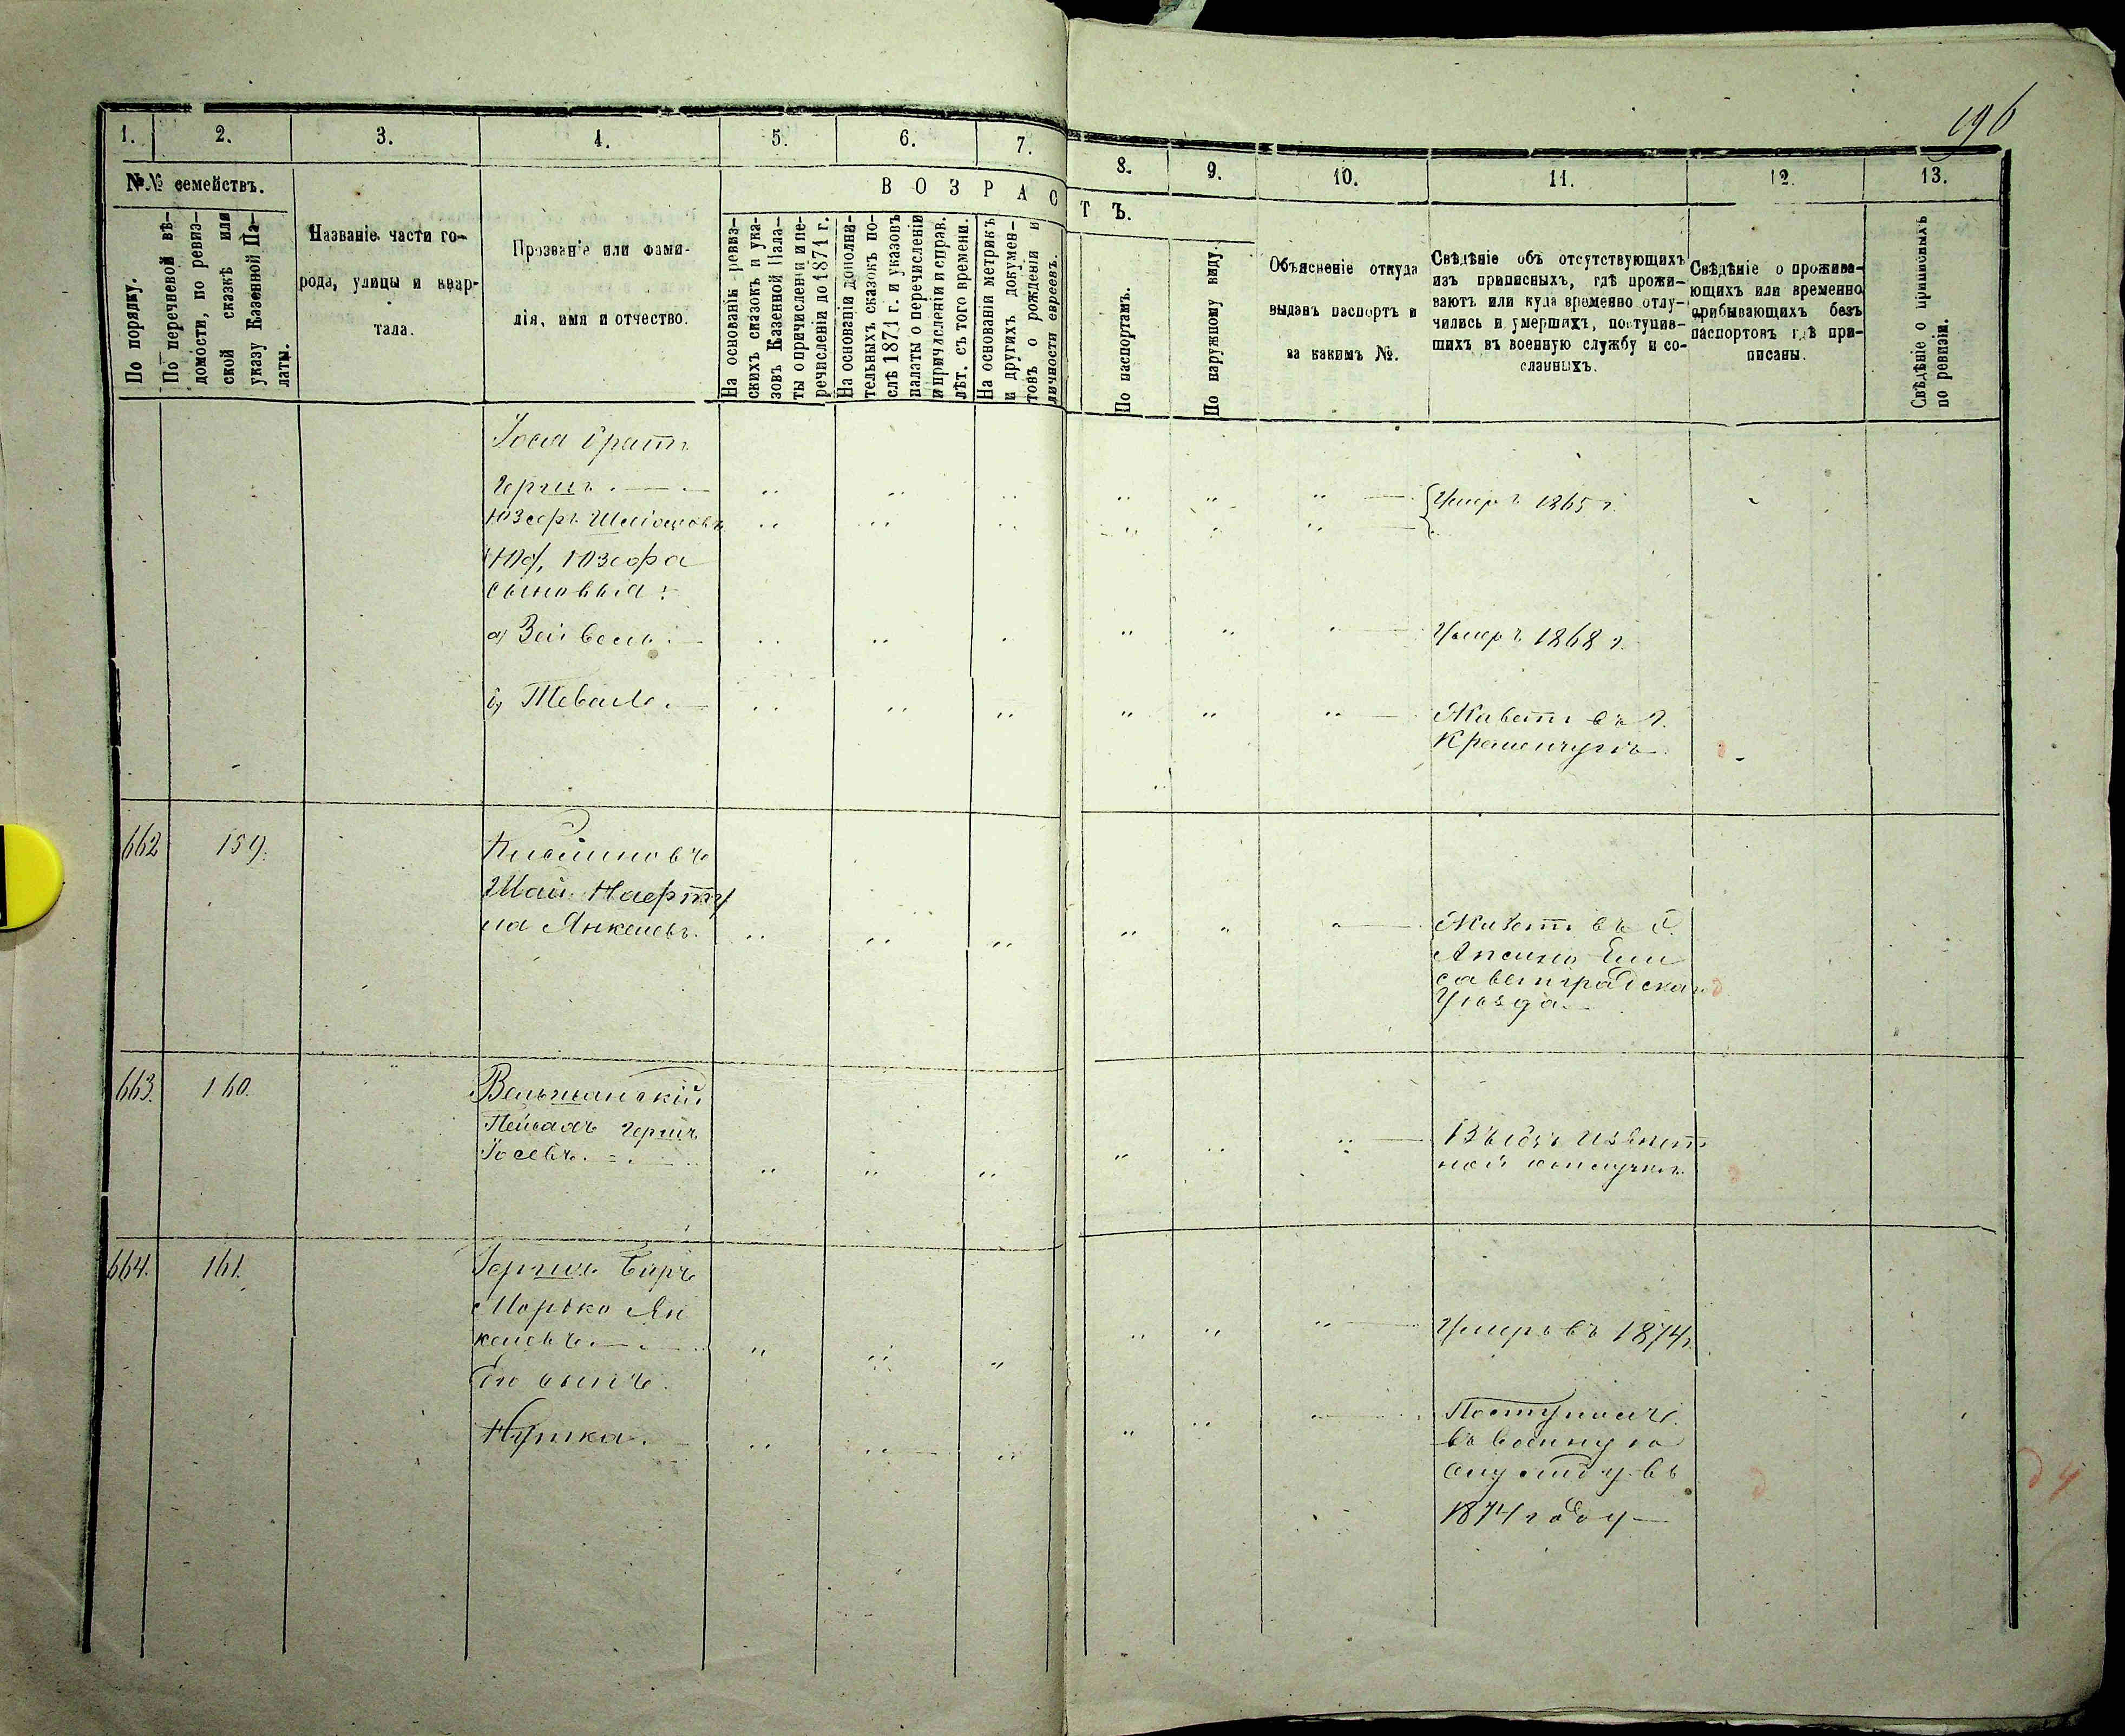 196
1. 2. 3. 4. 5. 6. 7. 8. 9. 10. 11. 12. 13.
№№ семействъ.
В О З Р А С Т Ъ.
По порядку.
По перечневой вѣ-
домости, по ревиз-
ской сказкѣ или
указу Казенной Па-
латы.
Названіе части го-
рода, улицы и квар-
тала.
Прозваніе или фами-
лія, имя и отчество.
На основаніи ревиз-
скихъ сказокъ и ука-
зовъ Казенной Пала-
ты о причисленіи и пе-
речисленіи до 1871 г.
На основаніи дополни-
тельныхъ сказокъ по-
слѣ 1871 г. и указовъ
палаты о перечисленіи
и причисленіи и справ.
лѣт. съ того времени.
На основаніи метрикъ
и другихъ докумен-
товъ о рожденіи и
личности евреевъ.
По паспортамъ.
По наружному виду.
Объясненіе откуда
выданъ паспортъ и
за какимъ №.
Свѣдѣніе объ отсутствующихъ
изъ приписныхъ, гдѣ прожи-
ваютъ или куда временно отлу-
чились и умершихъ, поступив-
шихъ въ военную службу и со-
сланныхъ.
Свѣдѣніе о прожива-
ющихъ или временно
прибывающихъ безъ
паспортовъ гдѣ при-
писаны.
Свѣдѣніе о приписныхъ
по ревизіи.
Іося братъ
Гершъ
Умеръ 1865 г.
Юзефъ
Юзефа
сыновья:
а) Зейвель
Умеръ 1868 г.
б) Тевель
Живетъ въ г.
Кременчугѣ
662 159.
Шай
ла Янкелевъ.
Живетъ въ
Ели
саветградскаго
Уѣзда
663. 160.
Вельшанскій
Пейсахъ Гершъ
Іосевъ.
Въ безъизвѣст
ной отлучкѣ.
664. 161.
Гершъ Беръ
Морько Ян
келевъ.
Умеръ въ 1874 г.
Его сынъ
Нутка.
Поступилъ
въ военную
службу въ
1874 году